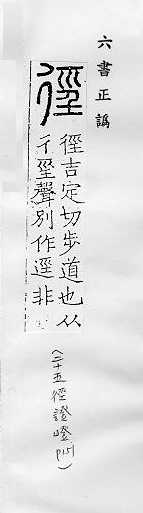 六書正譌
徑
徑吉定切步道也从
彳巠聲別作逕非
(二十五徑證嶝